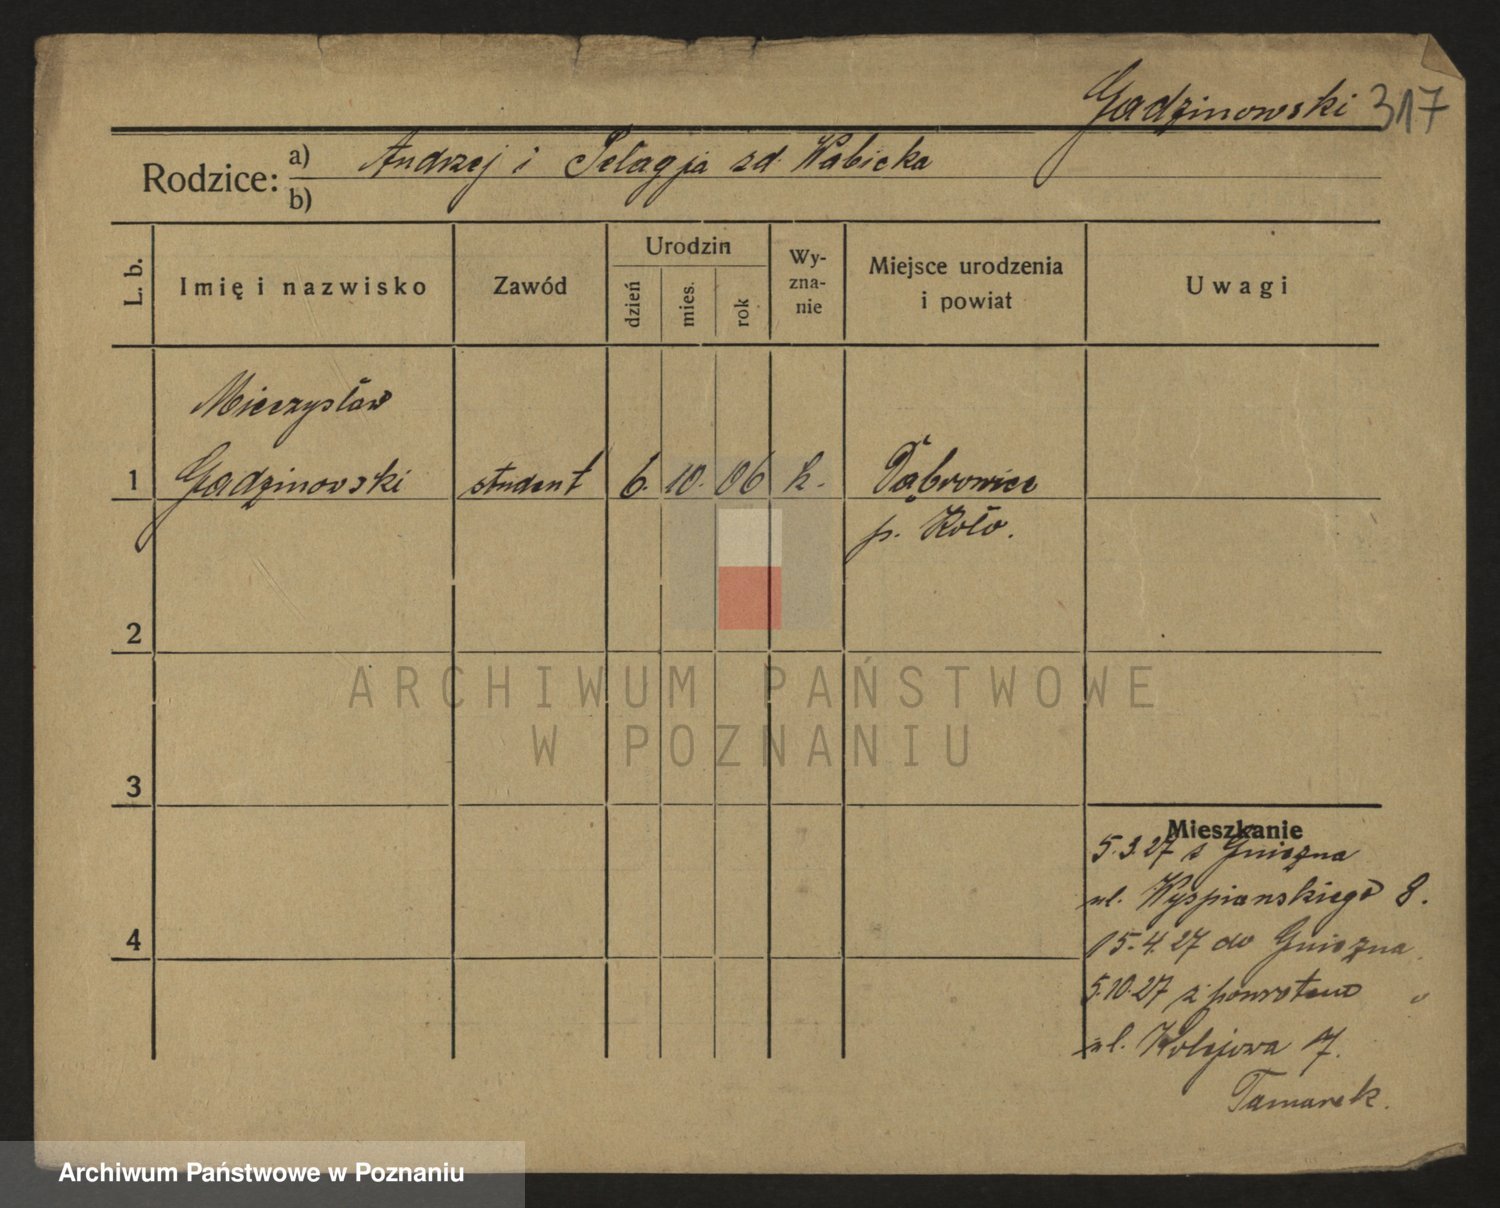 Gadzinowski 317
Rodzice: a) Andrzej i Pelagja zd. Wabicka
b)
L. b.
Imię i nazwisko
Zawód
Urodzin
dzień
mies.
rok
Wy-
zna-
nie
Miejsce urodzenia
i powiat
Uwagi
Mieczysław
1 Gadzinowski student 6. 10. 06 k. Dąbrowice
p. Koło.
2
ARCHIWUM PAŃSTWOWE
W POZNANIU
3
Mieszkanie
5.3.27 z Gniezna
ul. Wyspianskiego 8.
15.4.27 do Gniezna
4
5.10.27 z powrotem
ul. Kolejowa 7.
Tamarek.
Archiwum Państwowe w Poznaniu